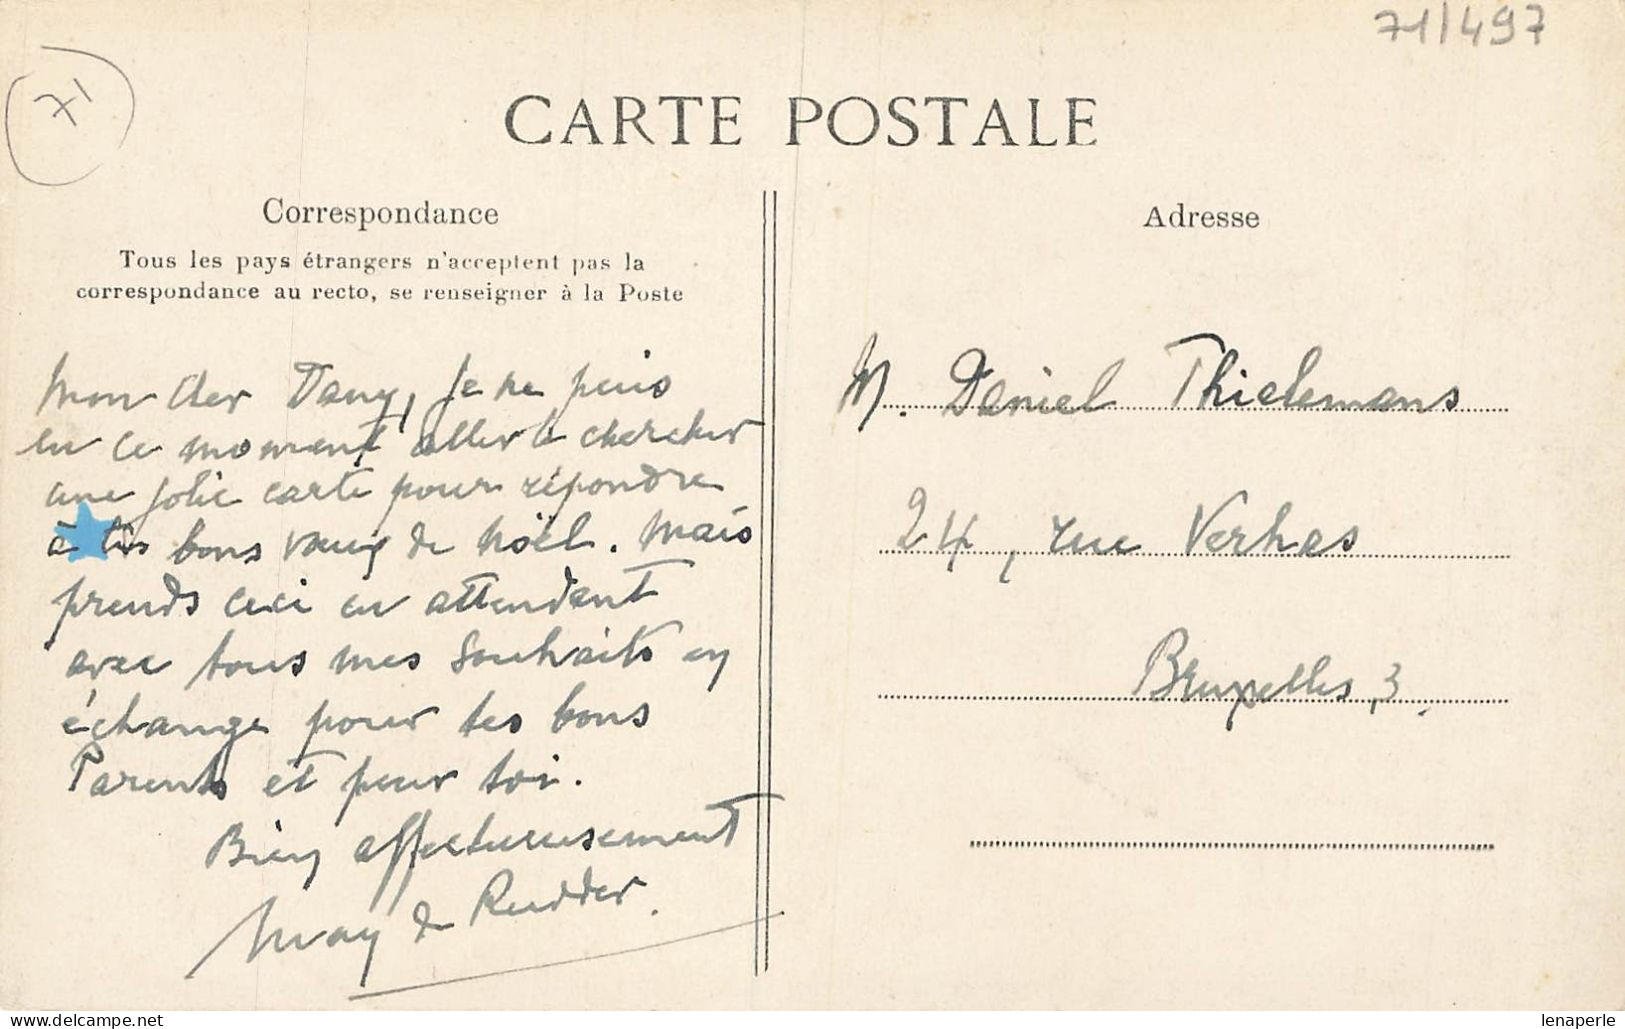 71/497
71
CARTE POSTALE
Correspondance
Tous les pays étrangers n'acceptent pas la
correspondance au recto, se renseigner à la Poste
Mon cher Dany, Je ne puis
en ce moment aller te chercher
une jolie carte pour répondre
à tes bons vœux de Noël. Mais
prends ceci en attendant
avec tous mes souhaits en
échange pour tes bons
Parents et pour toi.
Bien affectueusement
May de Rudder.
Adresse
M. Daniel Thielemans
24, rue Verhas
Bruxelles 3.
delcampe.net
lenaperle